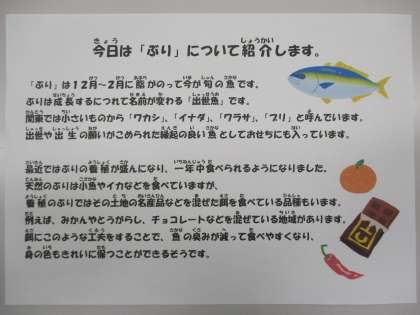 今日は「ぶり」について紹介します。
「ぶり」は12月～2月に脂がのって今が旬の魚です。
ぶりは成長するにつれて名前が変わる「出世魚」です。
関東では小さいものから「ワカシ」、「イナダ」、「ワラサ」、「ブリ」と呼んでいます。
出世や出生の願いがこめられた縁起の良い魚としておせちにも入っています。
最近ではぶりの養殖が盛んになり、一年中食べられるようになりました。
天然のぶりは小魚やイカなどを食べていますが、
養殖のぶりではその土地の名産品などを混ぜた餌を食べている品種もいます。
例えば、みかんやとうがらし、チョコレートなどを混ぜている地域があります。
餌にこのような工夫をすることで、魚の臭みが減って食べやすくなり、
身の色もきれいに保つことができるそうです。